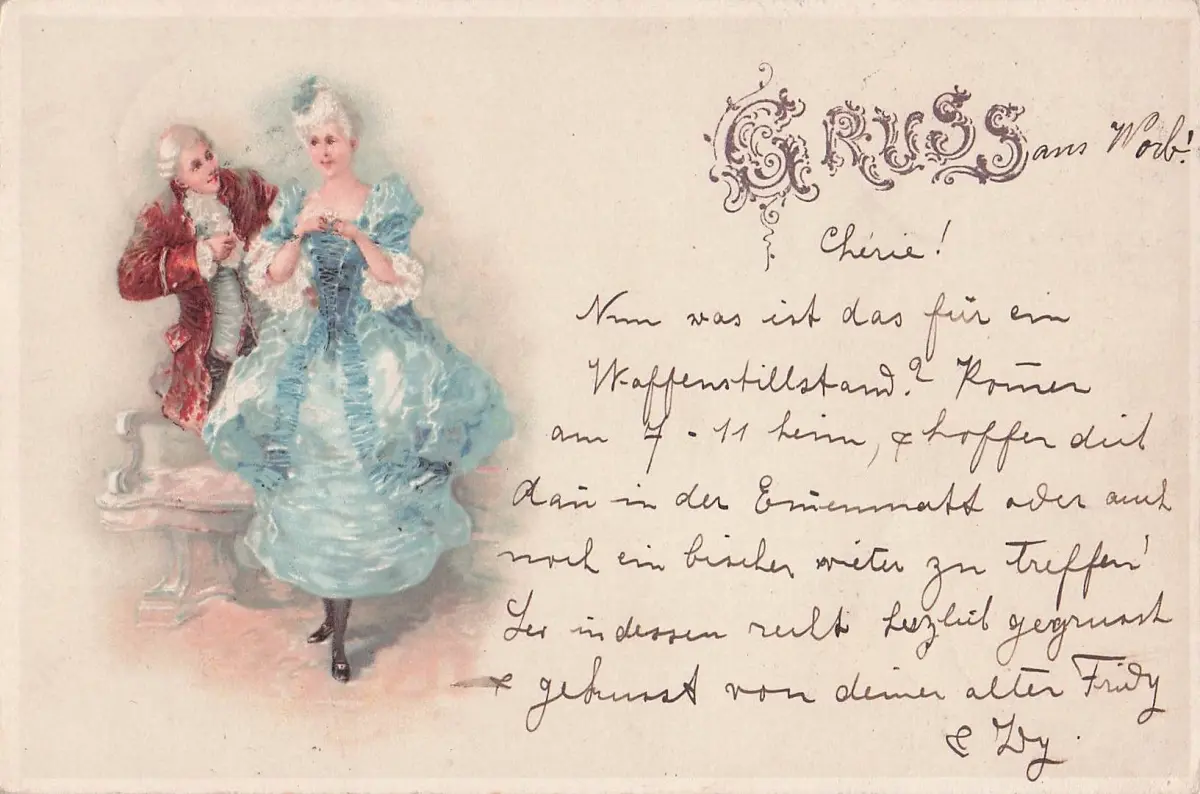 GRUSS aus Worb!
Chérie!
Nun was ist das für ein
Waffenstillstand? Kom̄en
am 7-11 heim, & hoffen dich
dan̄ in der Em̄enmatt oder auch
noch ein bischen weiter zu treffen!
Sei indessen recht herzlich gegrusst
& gekusst von deiner alten Fridy
&